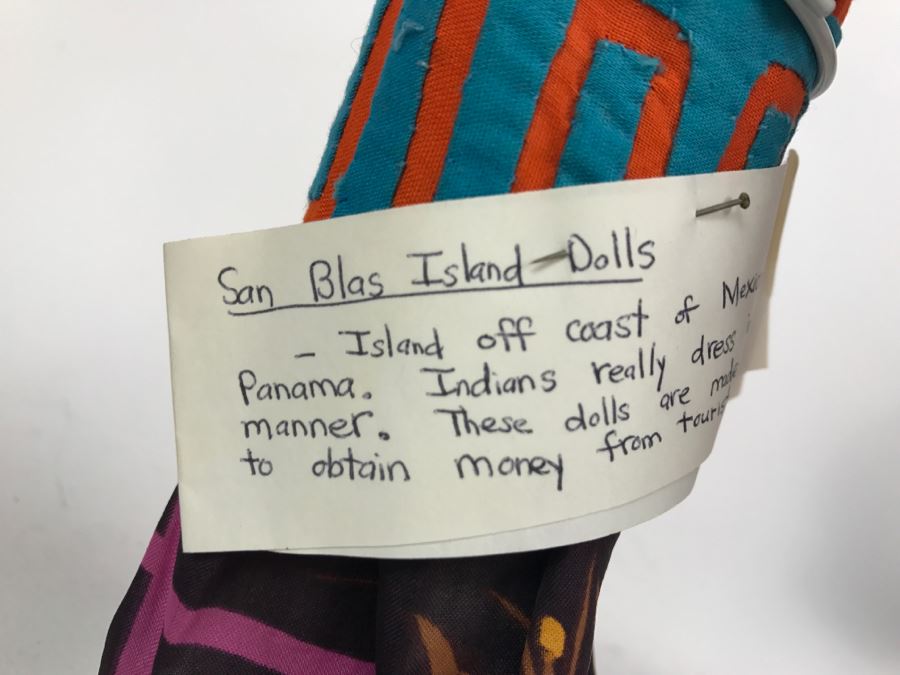 San Blas Island - Dolls
- Island off coast of Mexic
Panama. Indians really dress i
manner. These dolls are made
to obtain money from touris